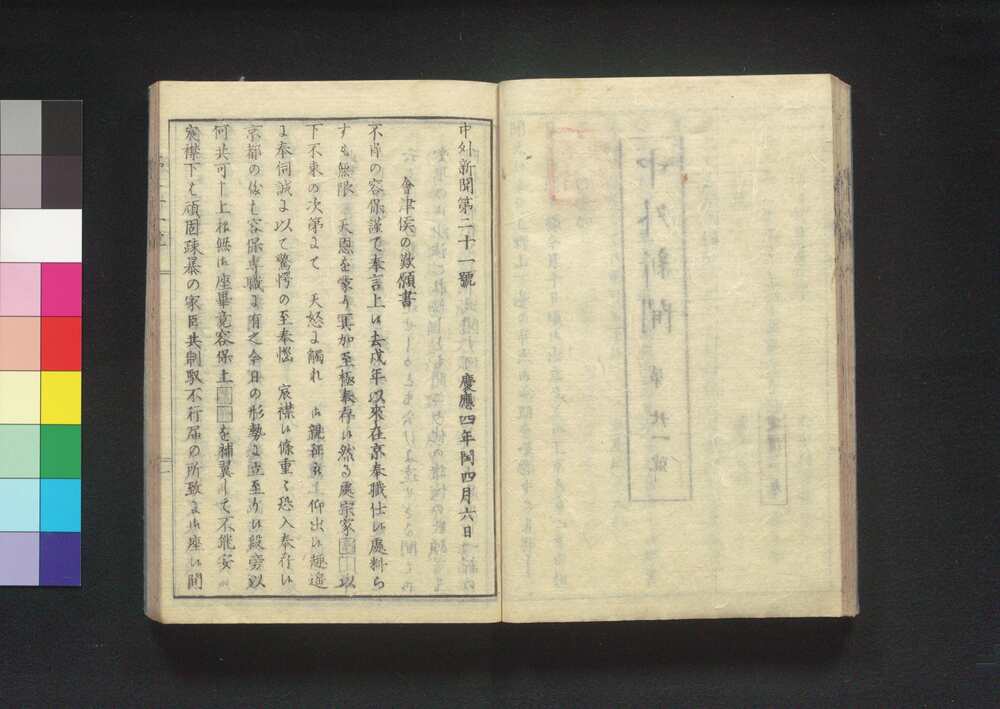 中外新聞第二十一號　慶應四年閏四月六日
會津侯の歎願書
不肖の容保謹て奉言上候去戌年以來在京奉職仕候處料ら
すも無限　天恩を蒙り冥加至極奉存候然る處宗家　以
下不束の次第よて　天怒よ觸れ　御親征　仰出候趣遙
よ奉伺誠よ以て驚愕の至奉惱　宸襟候條重々恐入奉存候
京都の儀も容保專職よ有之今日の形勢よ立至り候段旁以
何共可申上樣無御座畢竟容保土　を補翼して不能安
宸襟下も頑固疎暴の家臣共制馭不行屆の所致よ御座候間
中外新聞　第廿一號